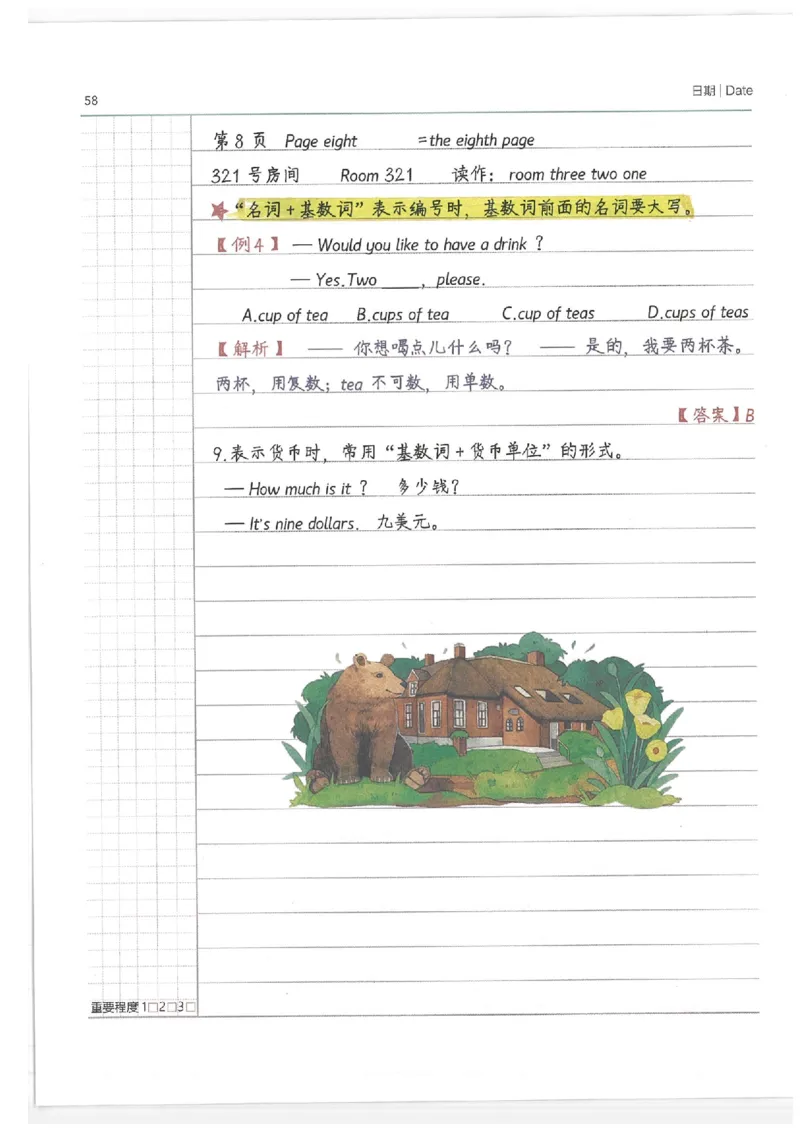 58
日期 | Date
第8页 Page eight =the eighth page
321号房间 Room 321 读作：room three two one
★“名词+基数词”表示编号时，基数词前面的名词要大写。
【例4】 — Would you like to have a drink ?
— Yes.Two ____, please.
A.cup of tea B.cups of tea C.cup of teas D.cups of teas
【解析】 —— 你想喝点儿什么吗? —— 是的，我要两杯茶。
两杯，用复数；tea 不可数，用单数。
【答案】B
9.表示货币时，常用“基数词+货币单位”的形式。
— How much is it ? 多少钱?
— It's nine dollars. 九美元。
重要程度 1□2□3□